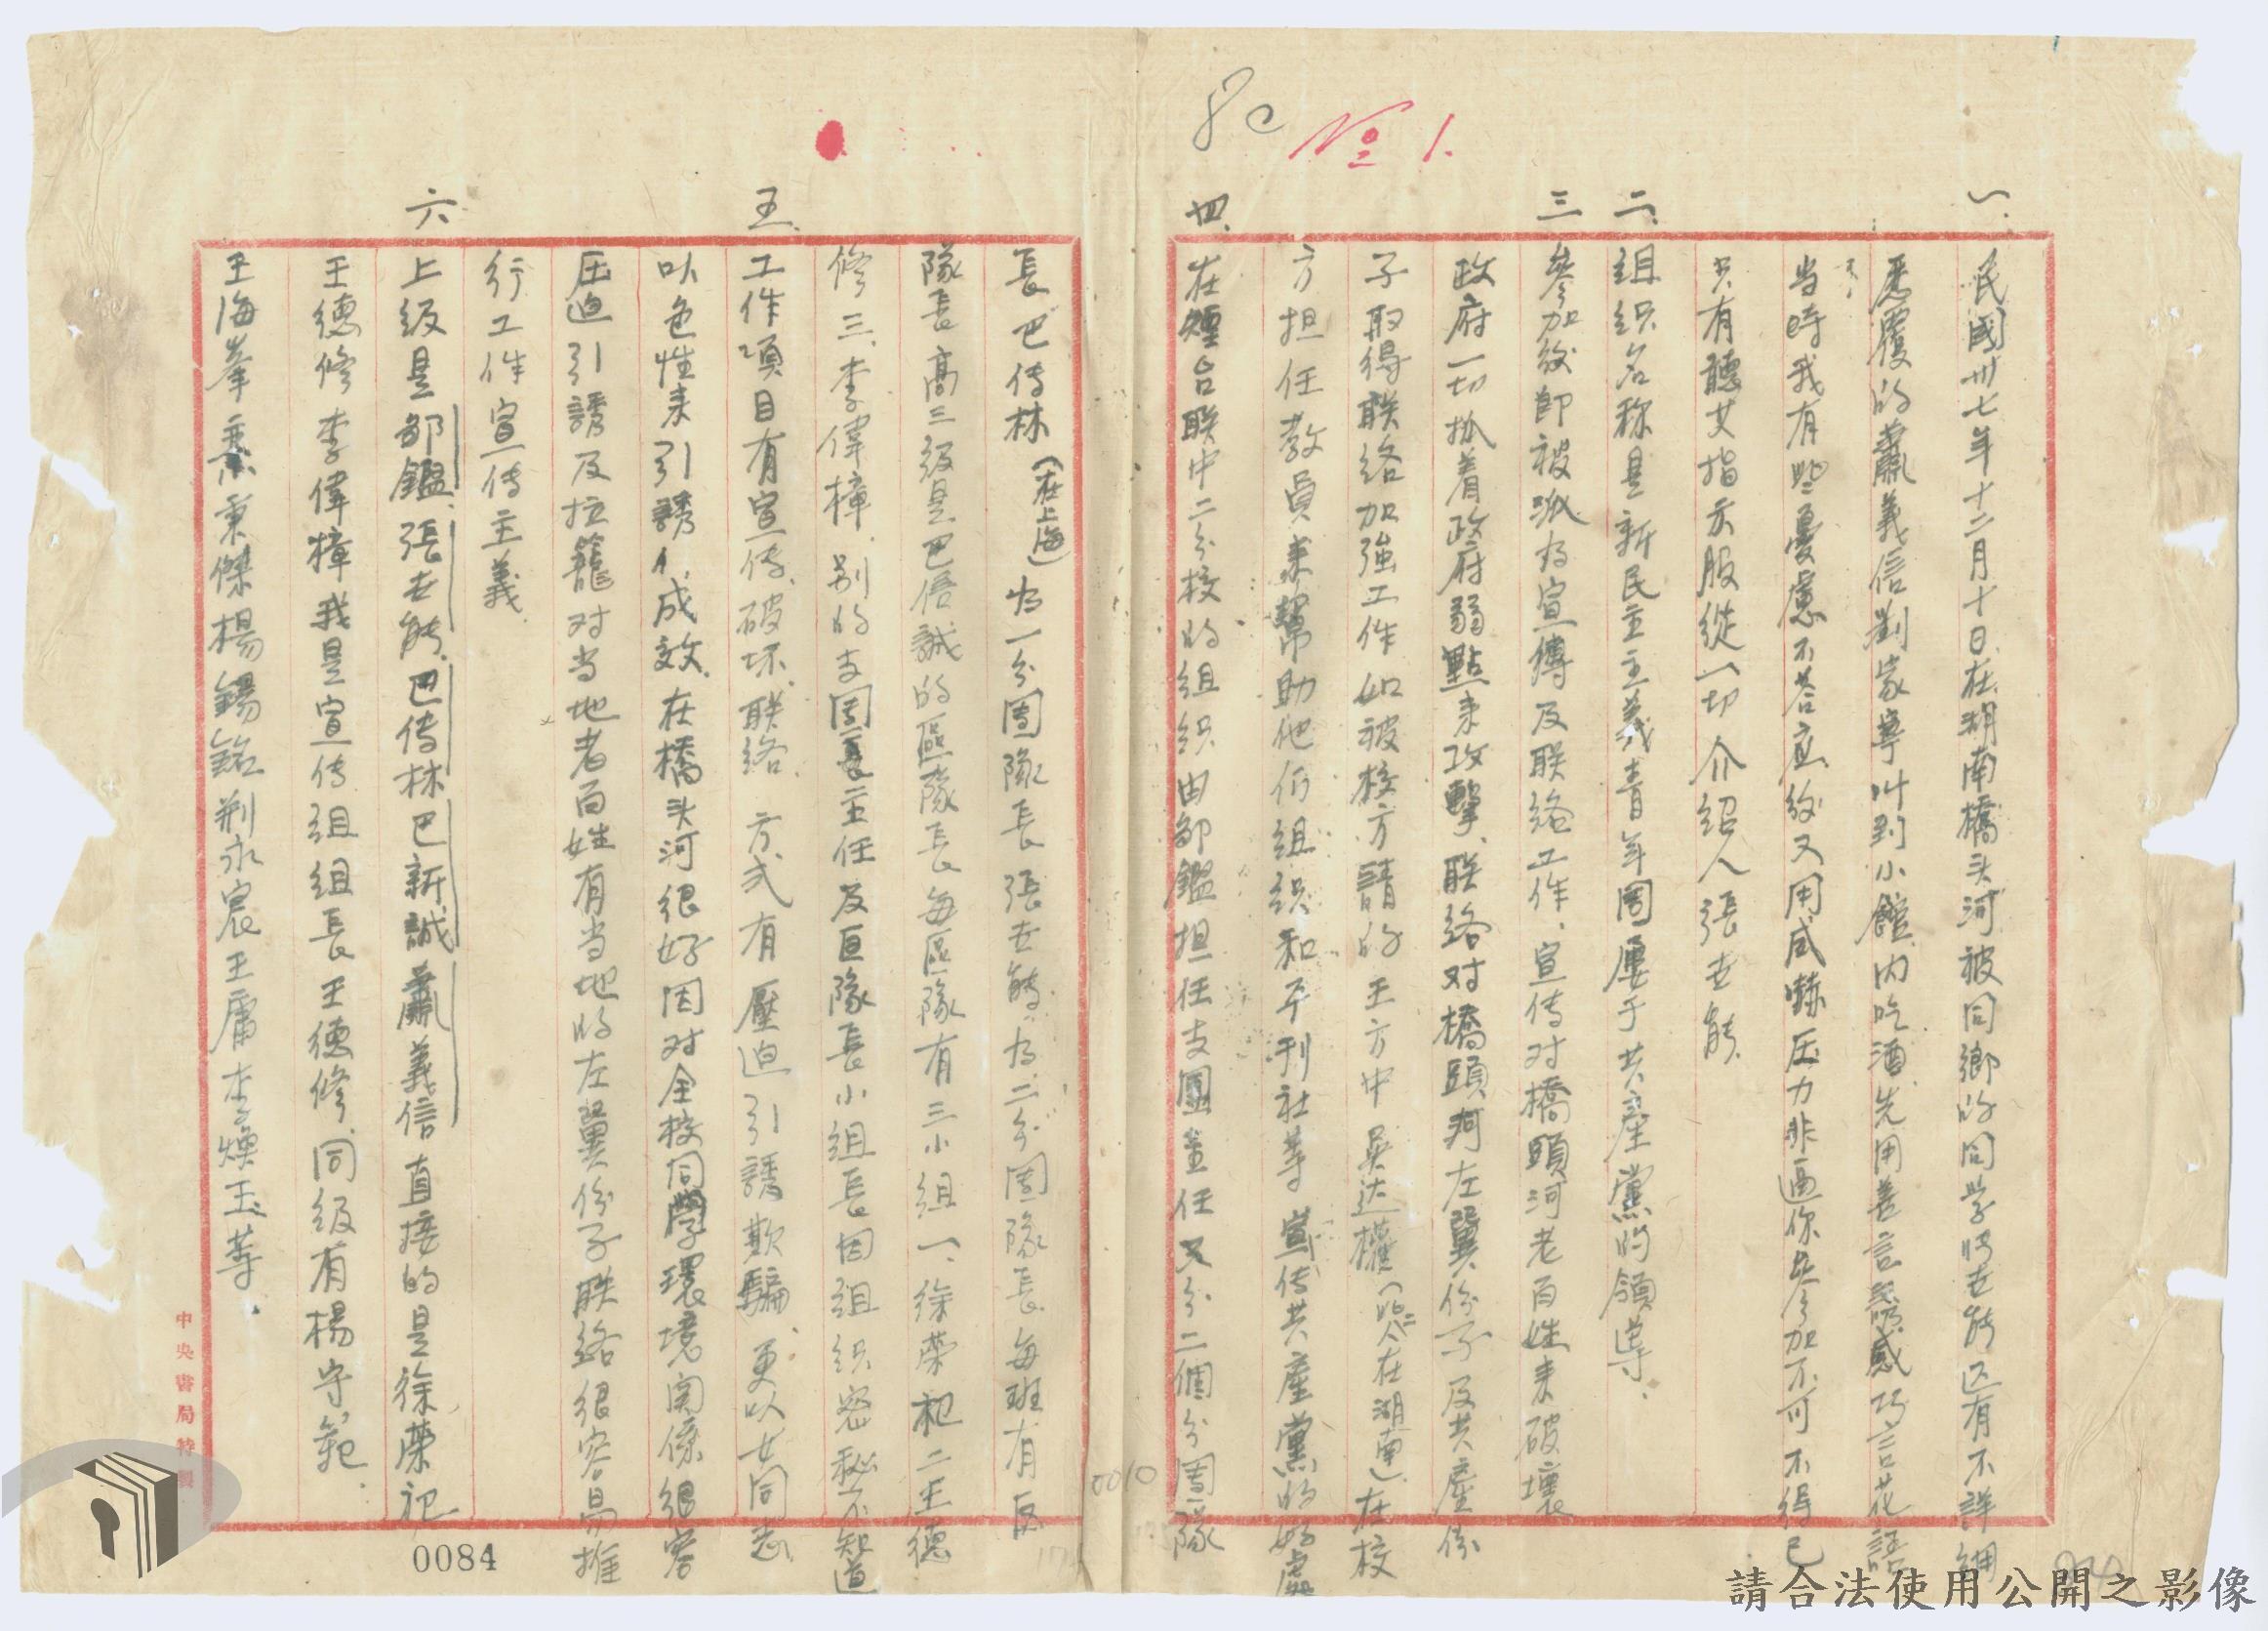 8c
No 1.
一. 民國卅七年十二月十日在湖南橋头河被同鄉的同学张世能还有不詳細
愿履的蕭義信劉家寧叫到小館内吃酒先用善言誘惑巧言花語
当時我有些憂慮不答应後又用威嚇压力非逼你参加不可不得已
只有聽其指示服從一切介紹人張世能
二. 组织名称是新民主主義青年團屬于共產黨的領导.
三 參加後即被派为宣傳及联络工作.宣传对橋頭河老百姓来破壞
政府一切抓着政府弱點来攻擊.联络对橋頭河左翼份子及共產份
子取得联络加強工作如被校方請的王方中吳达權(現在湖南)在校
方担任教員来幫助他们组织和平刊社等宣传共產黨的好處
四. 在煙台联中二分校的组织由邹鑑担任支團主任又分二個分團隊
長巴传林(在上海)为一分團隊長張世能为二分團隊長每班有区
隊長高三級是巴信誠的區隊長每區隊有三小组一、徐荣祀二王德
修三.李偉樟.别的支團主任及区隊長小组長因组织密秘不知道
五. 工作項目有宣传.破坏.联络.方式有壓迫引誘欺騙.更以女同志
以色性来引誘人成效.在橋头河很好因对全校同學環境関係很容
压迫引誘及拉籠对当地老百姓有当地的左翼份子联络很容易推
行工作宣传主義.
六. 上级是邹鑑.張世能.巴传林巴新誠蕭義信直接的是徐荣祀
王德修李偉樟我是宣传组组長王德修.同级有楊守範.
王海峯秉傑楊錫銘荆永宸王庸李煥玉等.
中央書局特製
0084
0010
請合法使用公開之影像